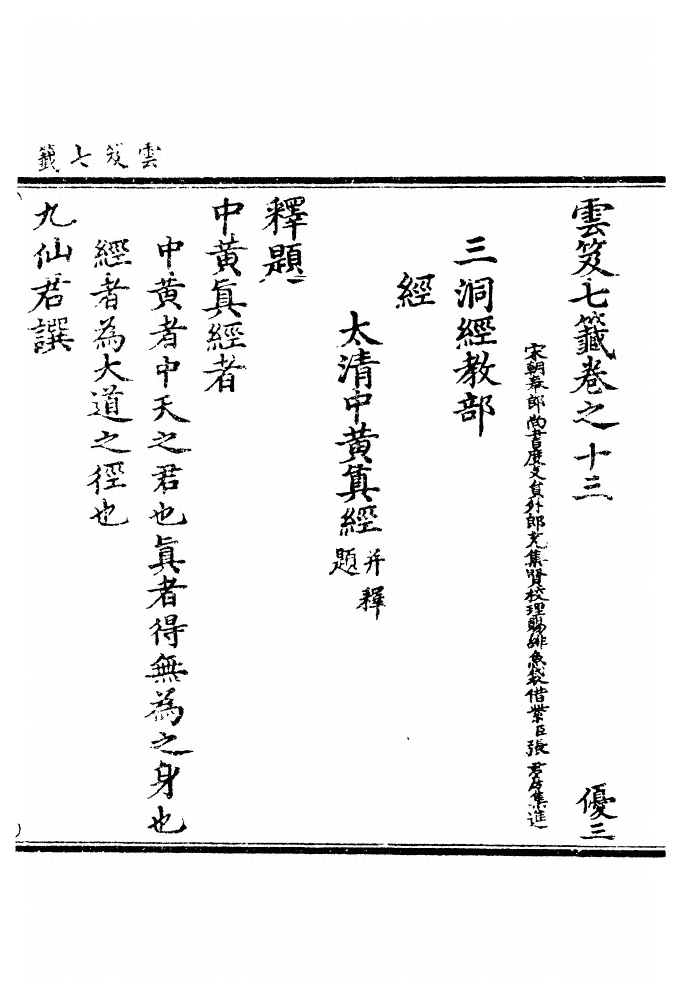 雲笈七籤
雲笈七籤卷之十三 優三
宋朝奉郎尚書度支員外郎充集賢校理賜緋魚袋借紫臣張君房集進
三洞經教部
經
太清中黃真經并釋題
釋題
中黃眞經者
中黃者中天之君也眞者得無為之身也
經者為大道之徑也
九仙君譔